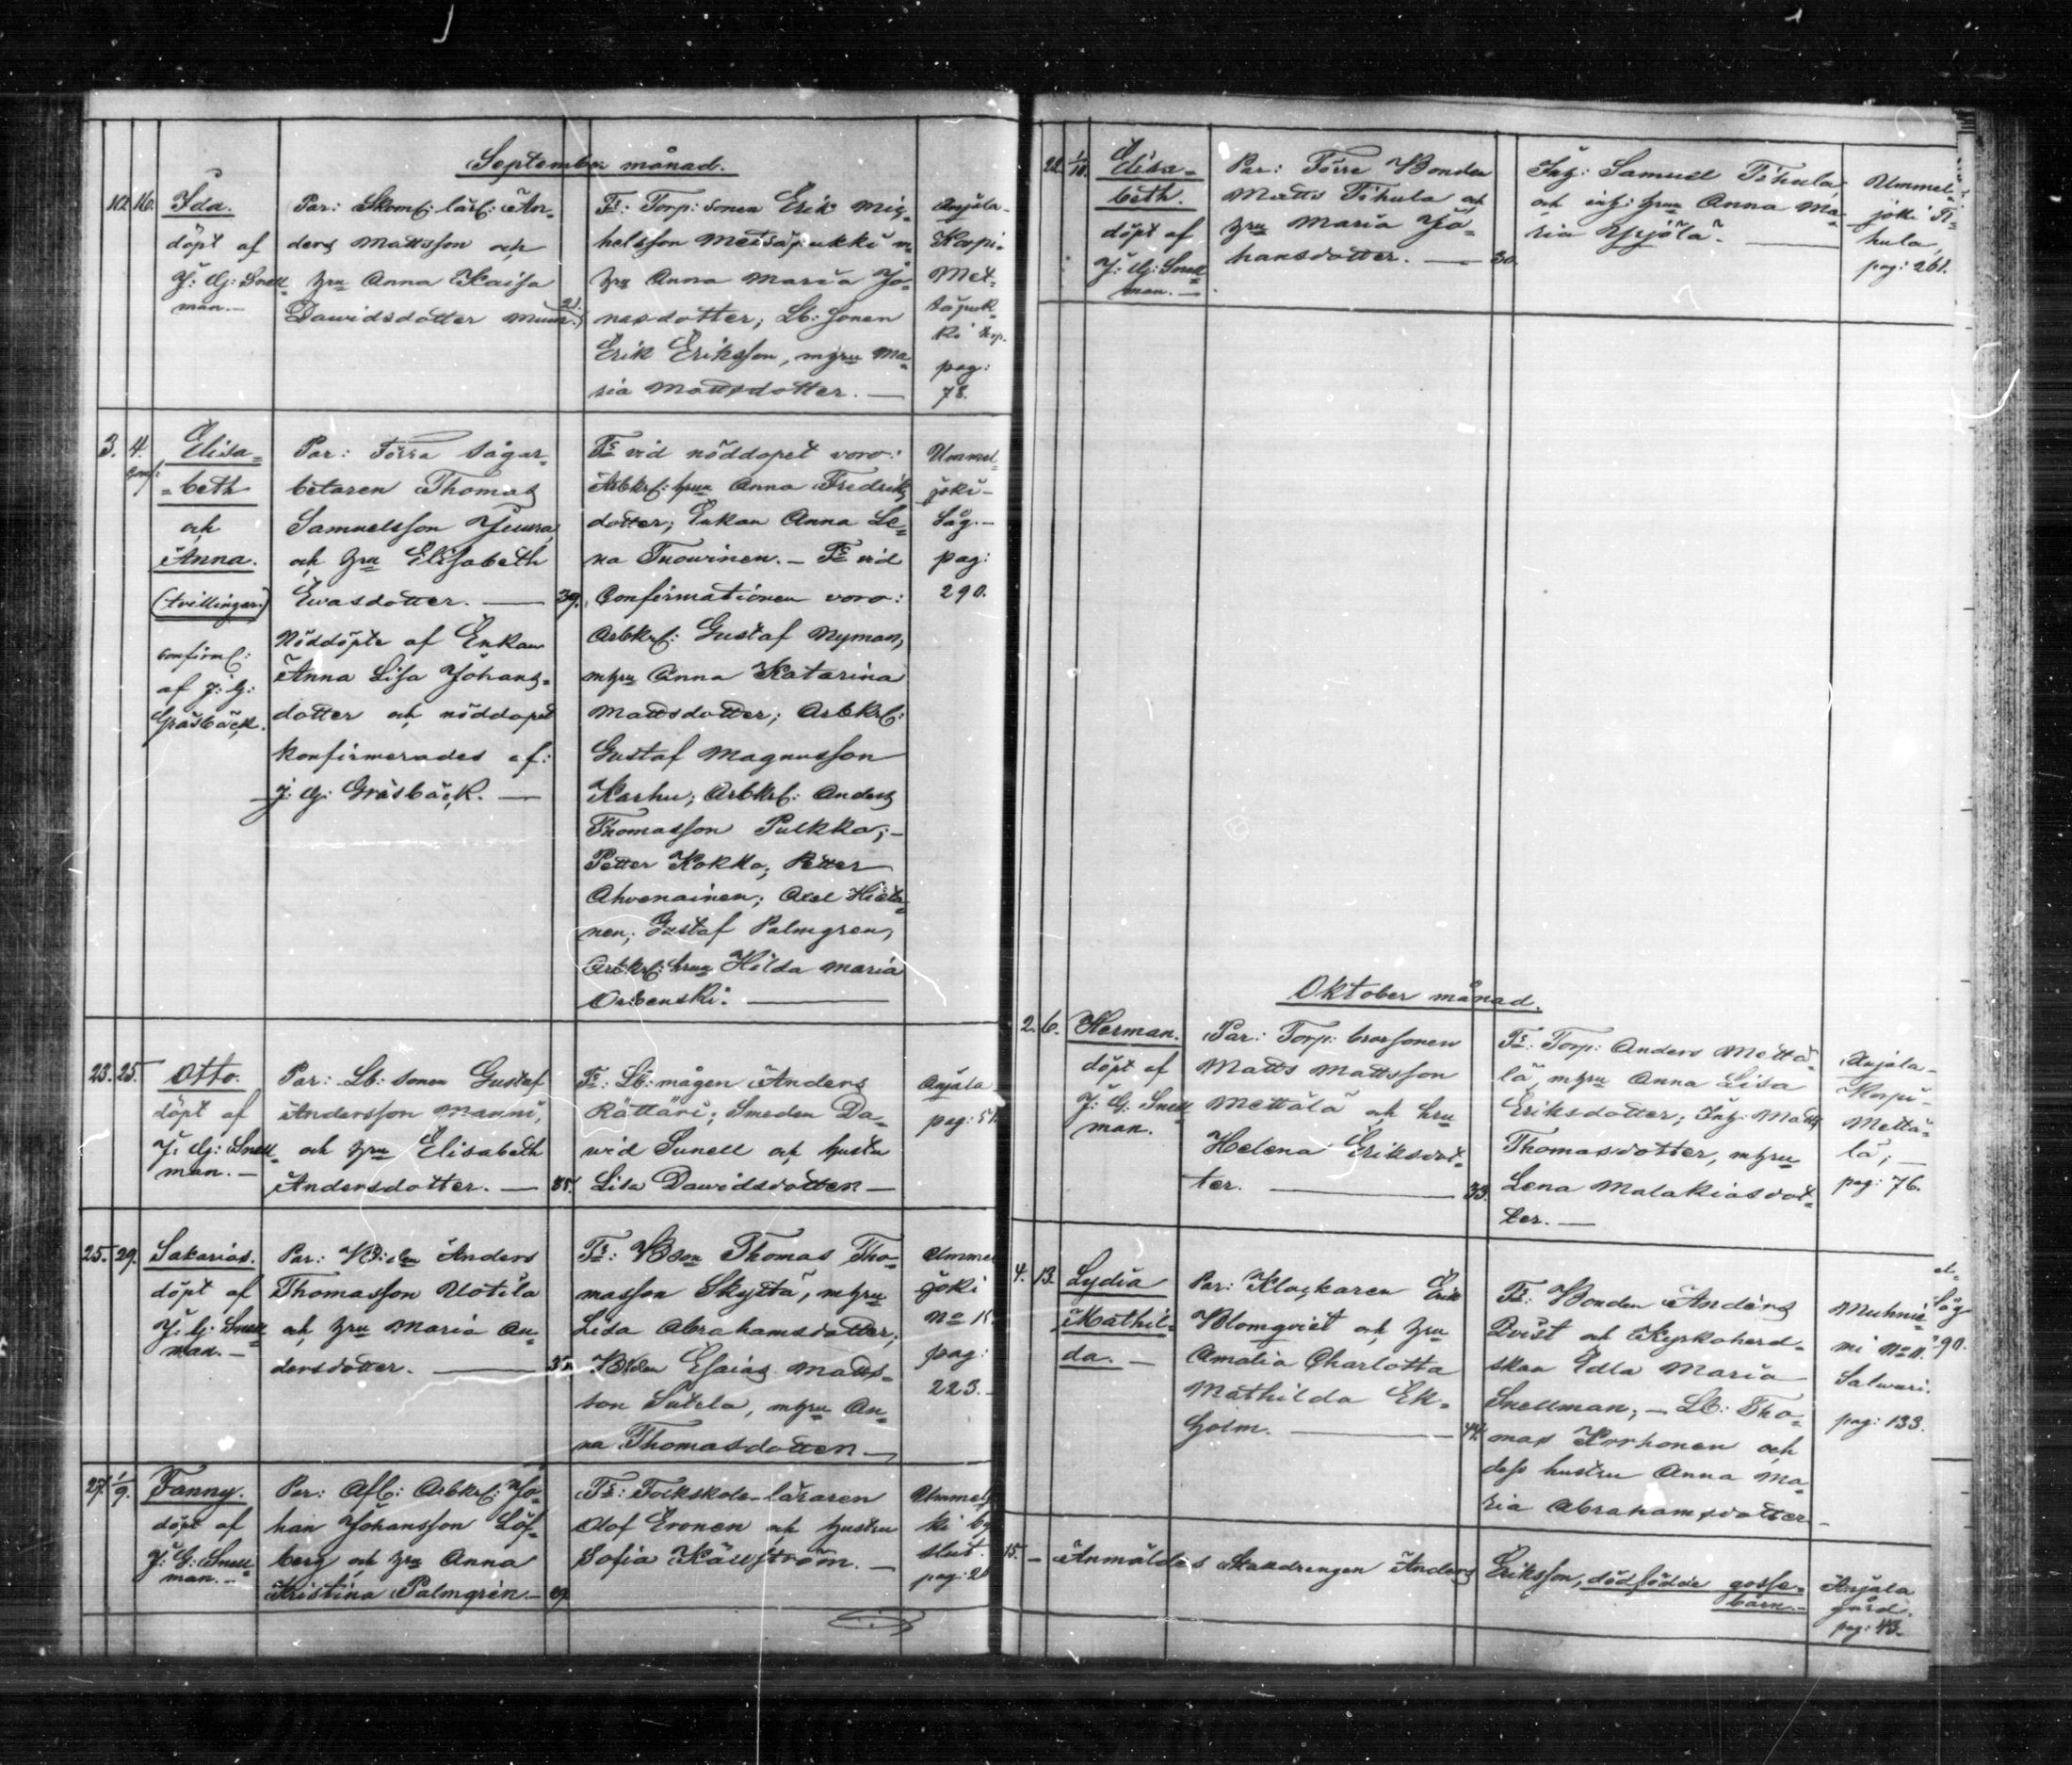 September månad.
10. 16. Ida.
döpt af
J: G: Snell-
man. -
Par: Skom: lärl: An-
ders Mattsson och
hru Anna Kaisa
Davidsdotter 21.
Fr: Torp: sonen Erik Mig-
helsson Metsäpukki m
hru Anna Maria Jo-
nasdotter; Lb: sonen
Erik Eriksson, mhru Ma-
ria Mattsdotter. —
Anjala-
Korpi-
Met-
säpuk-
ki torp.
pag:
78.
3. 4.
conf:
Elisa-
-beth
och
Anna.
(tvillingar.)
confirm:
af J: G:
Gräsbäck.
Par: Förra sågar-
betaren Thomas
Samuelsson Juura
och hru Elisabeth
Evasdotter. — 39.
Nöddöpte af Enkan
Anna Lisa Johans-
dotter och nöddopet
konfirmerades af:
J: G: Gräsbäck. —
Fr vid nöddopet voro:
Arbkrl: hrun Anna Fredriks
dotter; Enkan Anna Le-
na Tuovinen. - Fr vid
Confirmationen voro:
Arbkrl: Gustaf Nyman,
mhru Anna Katarina
Mattsdotter; Arbkrl:
Gustaf Magnusson
Karhu; Arbkrl: Anders
Thomasson Pulkka; -
Petter Kokko; Petter
Ahvenainen; Axel Hieta-
nen; Gustaf Palmgren,
Arbkrl: hrun Hilda Maria
Ummel-
joki-
Såg. -
pag:
290.
23. 25. Otto.
döpt af
J: G: Snell-
man. -
Par: Lb: sonen Gustaf
Andersson Manni,
och hru Elisabeth
Andersdotter. —
Fr: Lb: mågen Anders
Rättäri; Smeden Da-
vid Sunell och hustru
Lisa Davidsdotter —
Anjala
pag: 51.
25. 29. Sakarias.
döpt af
J: G: Snell-
man. -
Par: Anders
Thomasson Uotila
och hru Maria An-
dersdotter. —
Fr: Bson Thomas Tho-
masson Skyttä, mhru
Lisa Abrahamsdotter;
Bden Esaias Matts-
son Sutela, mhru An-
na Thomasdotter —
Ummel
joki
No
pag:
223.
27. 1/9. Fanny.
döpt af
J: G: Snell-
man. -
Par: Afl: Arbkrl: Jo-
han Johansson Löf-
berg och hru Anna
Kristina Palmgrén. -
Fr: Folkskole-läraren
Olof Eronen och hustru
Sofia Källström. —
Ummeljo
ki by
slut.
pag: 2
22. 1/10. Elisa-
beth.
döpt af
J: G: Snell-
man. -
Par: Förre Bonden
Matts Tihula och
hru Maria Jo-
hansdotter. — 30.
Inh: Samuel Tihula,
och inh: hrun Anna Ma-
ria Yrjölä. —
Ummel-
joki Ti-
hula,
pag: 261.
Oktober månad.
2. 6. Herman.
döpt af
J: G: Snell-
man.
Par: Torp: brorsonen
Matts Mattsson
Mettälä och hru
Helena Eriksdot-
ter. — 33.
Fr: Torp: Anders Mettä-
lä, mhru Anna Lisa
Eriksdotter; Inh: Matts
Thomasdotter, mhru
Lena Malakiasdot-
ter. —
Anjala-
Korpi-
Mettä-
lä; —
pag: 76.
4. 13. Lydia
Mathil-
da. -
Par: Klockaren Erik
Blomqvist och hru
Amalia Charlotta
Mathilda Ek-
holm. — 44.
Fr: Bonden Anders
Qvist och Kyrkoherd-
skan Edla Maria
Snellman; - Lb: Tho-
mas Korhonen och
dess hustru Anna Ma-
ria Abrahamsdotter -
Muhnie-
mi No
Salvari.
pag: 133.
el-
Såg
90.
15. - Anmäldes Anders Eriksson, dödfödde gosse-
barn. -
Anjala
gård.
pag: 43.